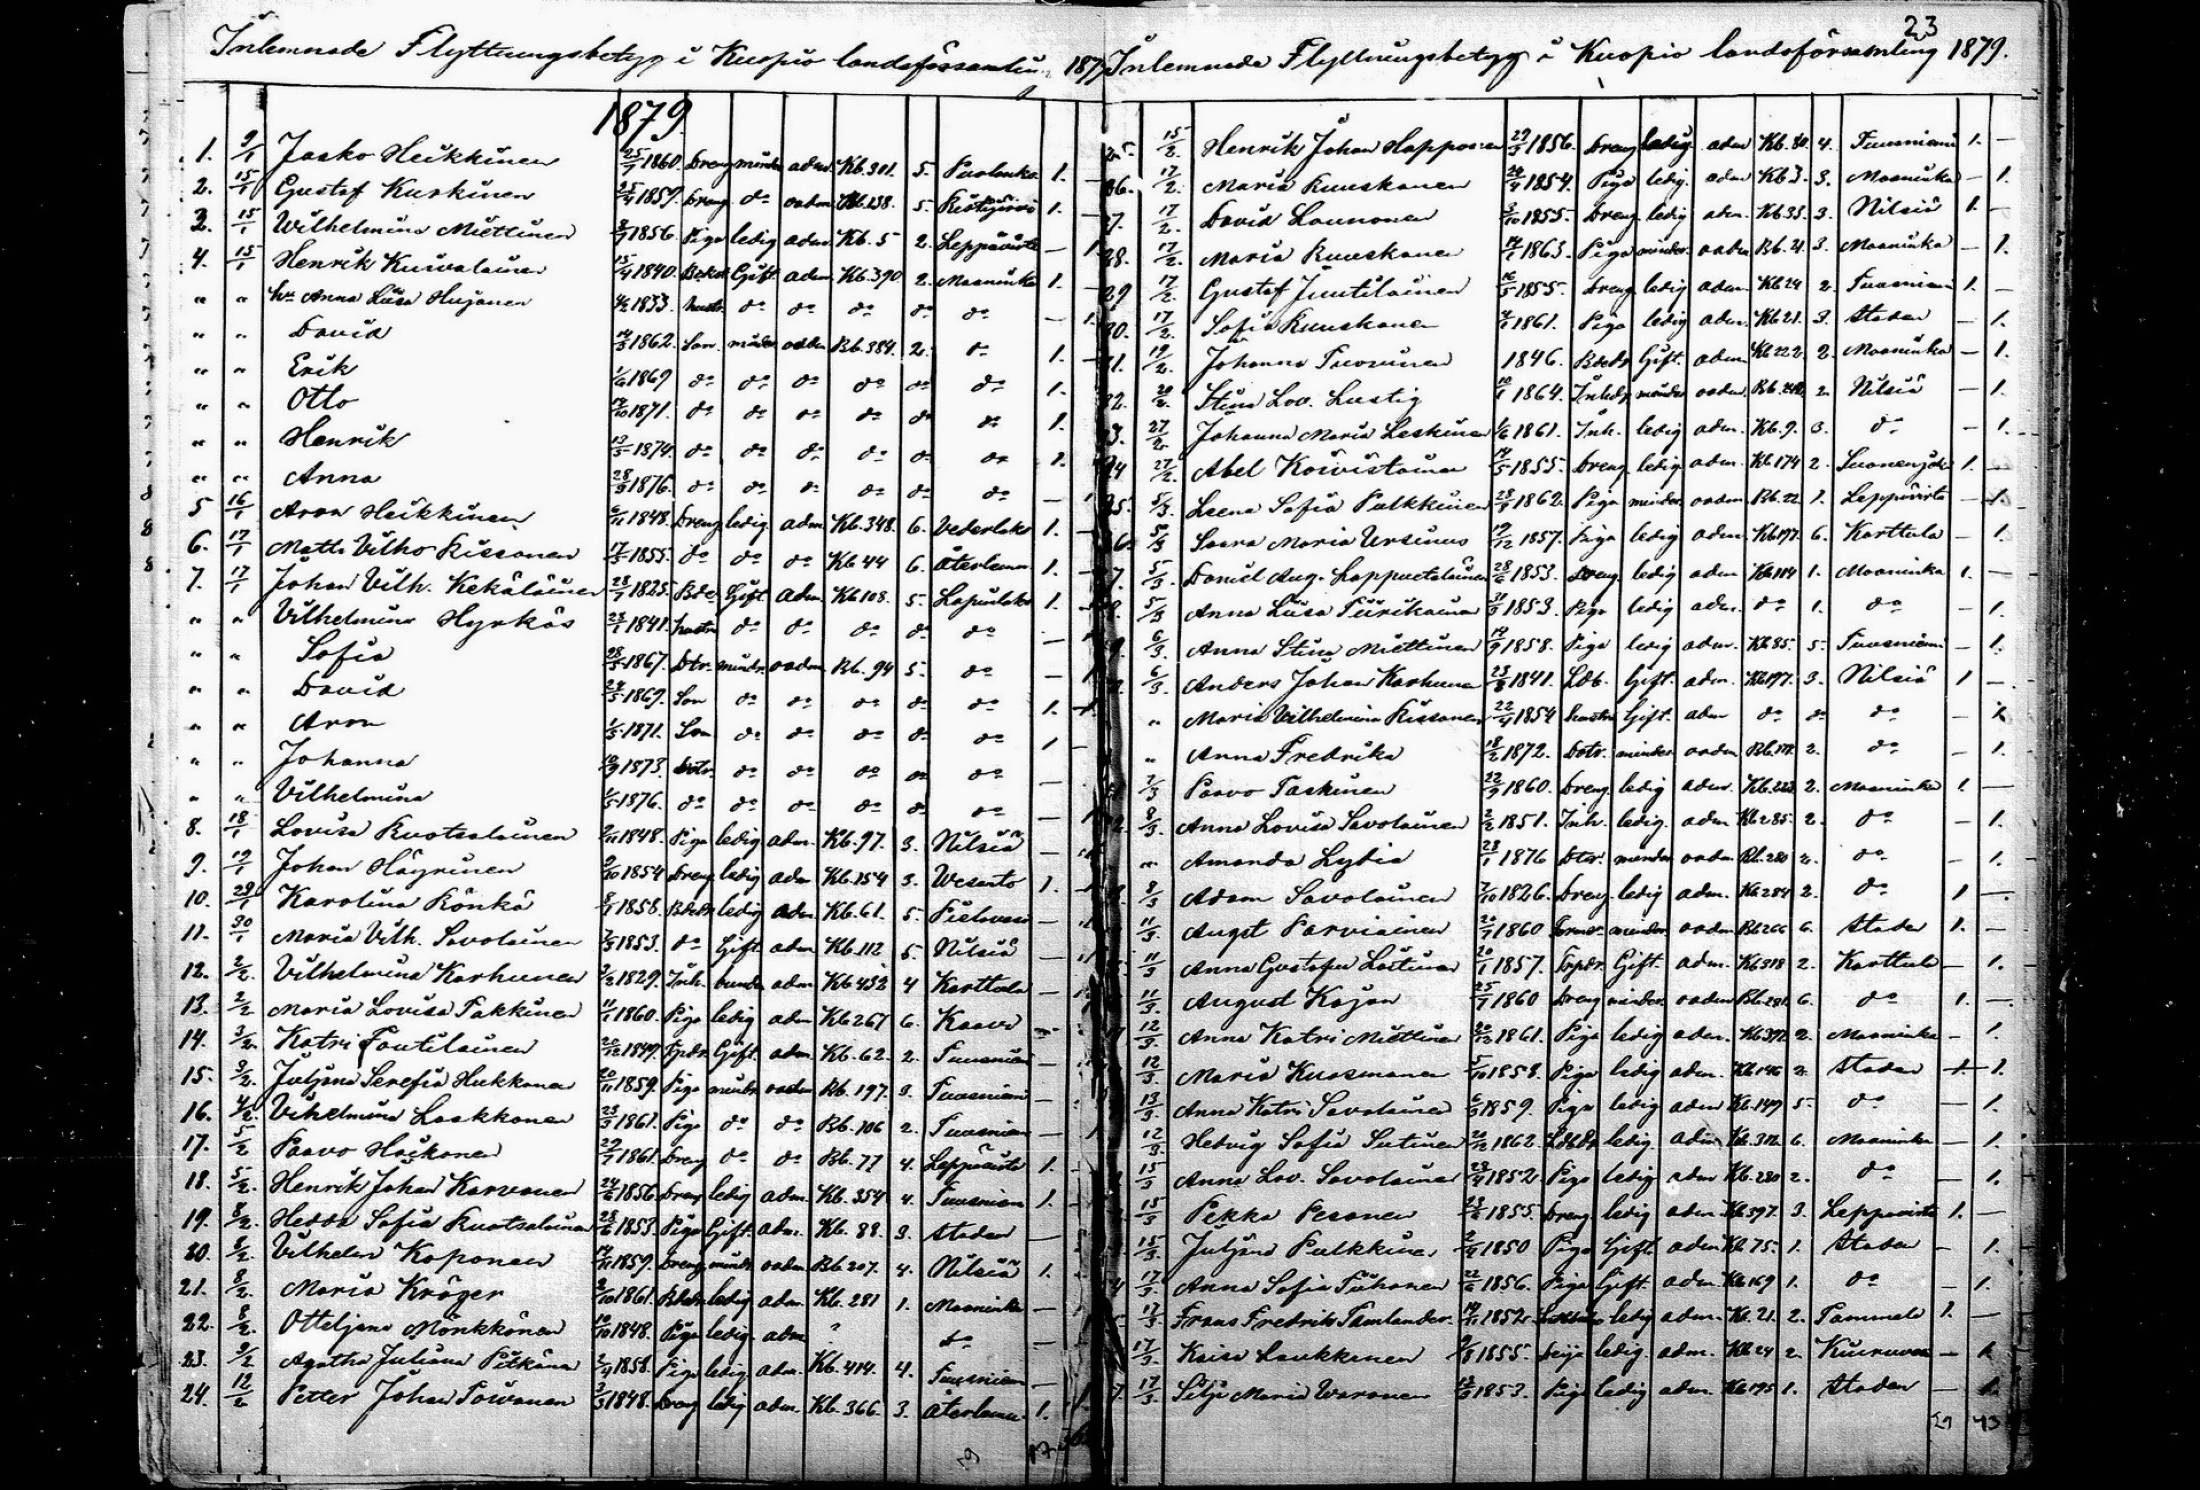 Inlemnade Flyttningsbetyg i Kuopio landsförsamlin 187
1879.
1. 9/1 Jaako Heikkinen 25/7 1860. Dreng minder adm. Kb. 301. 5. 1. —
2. 15/1 Gustaf Kurkinen 25/4 1859. Dreng do oadm. Bb. 238. 5. 1. —
3. 15/1 Wilhelmina Miettinen 8/9 1856. Piga ledig adm. Kb. 5 2. Leppävirta — 1.
4. 15/1 Henrik Kuivalainen 15/4 1840. Gift adm. Kb. 390. 2. Maaninka 1. —
" " hu Anna Liisa Hujanen 4/2 1833. hustr. do do do do do — 1.
" " David 14/3 1862. Son. minder oadm Bb. 384. 2. do 1. —
" " Erik 1/6 1869 do do do do do do 1.
" " Otto 14/10 1871. do do do do do do 1.
" " Henrik 13/5 1874. do do do do do do 1.
" " Anna 28/9 1876. do do do do do do — 1
5 16/1 Aron Heikkinen 6/11 1848. Dreng ledig adm. Kb. 348. 6. Vederlaks 1. —
6. 17/1 Matts Vilho Rissanen 17/5 1855. do do do Kb 44 6. Återkom 1. —
7. 17/1 Johan Vilh. Kekäläinen 28/7 1825. Bde Gift adm. Kb 108. 5. Lapinlaks 1. —
" " Vilhelmina Hyrkäs 23/1 1841. hustr do do do do do —
" " Sofia 28/5 1867. Dtr. mindr. oadm. Bb. 94 5. do — 1
" " David 24/5 1869. Son do do do do do 1. —
" " Aron 1/5 1871. Son do do do do do 1 —
" " Johanna 10/9 1873. Dotr. do do do do do —
" " Vilhelmina 1/5 1876. do do do do do do — 1
8. 18/1 Lovisa Ruotsalainen 2/11 1848. Piga ledig adm. Kb. 97. 3. Nilsiä —
9. 19/1 Johan Häyrinen 9/10 1854 Dreng ledig adm Kb. 154 3. Wesanto 1. —
10. 29/1 Karolina Rönkä 8/1 1858. Bdedr ledig adm. Kb. 61. 5. Pielavesi —
11. 30/1 Maria Vilh. Savolainen 7/3 1853. do Gift. adm Kb. 112 5. Nilsiä —
12. 2/2. Vilhelmina Karhunen 3/2 1829. Inh. adm Kb 432 4 Karttula —
13. 2/2 Maria Lovisa Takkinen 11/1 1860. Piga ledig adm Kb 267 6. Kaavi —
14. 3/2. Katri Tautilainen 20/12 1849. Gift. adm Kb. 62. 2. Tuusniemi —
15. 3/2. Juljana Serefia Hukkanen 20/11 1859. Piga mindr oadm Bb. 197. 3. Tuusniemi —
16. 4/2. Vilhelmina Laakkonen 23/3 1861. Piga do do Bb. 106 2. Tuusniemi —
17. 5/2 Paavo Hoikonen 29/7 1861. Dreng do do Bb. 77 4. Leppävirta 1. —
18. 5/2. Henrik Johan Karvonen 24/6 1856. Dreng ledig adm. Kb. 354 4. Tuusniemi 1. —
19. 8/2. Hedda Sofia Ruotsalainen 28/6 1853. Piga Gift. adm. Kb. 88. 3. Staden —
20. 8/2. Vilhelm Koponen 14/11 1859. Dreng mindr oadm Bb 207. 4. Nilsiä 1.
21. 8/2. Maria Kröger 2/10 1861. Bdedr ledig adm. Kb. 281 1. Maaninka —
22. 8/2. Otteljana Mönkkönen 10/10 1848. Piga ledig. adm ? do —
23. 9/2 Agatha Juliana Pitkänen 2/4 1858. Piga ledig adm. Kb. 414. 4. Tuusniemi —
24. 12/2 Petter Johan Toivanen 3/3 1848. Dreng ledig adm. Kb. 366. 3. Återkom. 1.
23
Inlemnade Flyttningsbetyg i Kuopio landsförsamling 1879.
25. 15/2. Henrik Johan Happonen 29/3 1856. Dreng ledig adm Kb. 80. 4. Tuusniemi 1. —
26. 17/2. Maria Ruuskanen 20/4 1854. Piga ledig. adm Kb 3. 3. Maaninka — 1.
27. 17/2. David Launonen 3/10 1855. Dreng ledig adm. Kb 35. 3. Nilsiä 1. —
28. 17/2. Maria Ruuskanen 14/1 1863. Piga minder. oadm Bb. 21. 3. Maaninka — 1.
29 17/2. Gustaf Juutilainen 16/5 1855. Dreng ledig adm. Kb 24 2. Tuusniemi 1. —
30. 17/2. Sofia Ruuskanen 4/1 1861. Piga ledig adm. Kb 21. 3. Staden — 1.
31. 19/2. Johanna Tuovinen 1846. Bdedr Gift. adm. Kb 222. 2. Maaninka — 1.
32. 20/2. Stina Lov. Lustig 10/1 1864. minder oadm. Bb. 2. Nilsiä — 1.
33. 27/2. Johanna Maria Leskinen 1/6 1861. Inh. ledig adm. Kb. 9. 3. do — 1.
34 27/2. Abel Koivistoinen 14/5 1855. Dreng ledig adm. Kb 174 2. Suonenjoki 1. —
35. 5/3. Leena Sofia Pulkkinen 28/9 1862. Piga minder. oadm. Bb. 22. 1. Leppävirta — 1.
36. 5/3 Saara Maria Ursinus 19/12 1857. Piga ledig adm. Kb 197. 6. Karttula — 1.
37. 5/3. Daniel Aug. Lappvetelainen 28/6 1853. Dreng ledig adm Kb 114 1. Maaninka 1. —
38. 5/3 Anna Liisa Tiirikainen 31/3 1853. Piga ledig adm. do 1. do — 1.
39. 6/3. Anna Stina Miettinen 14/9 1858. Piga ledig adm. Kb 85. 5. Tuusniemi — 1.
40. 6/3. Anders Johan Karhunen 23/8 1841. Ldb. Gift. adm. Kb 197. 3. Nilsiä 1 —
" Maria Vilhelmina Rissanen 22/4 1854 hustru Gift. adm do do do — 1.
" Anna Fredrika 18/2 1872. Dotr. minder oadm. 2. do — 1.
7/3 Paavo Taskinen 22/9 1860. Dreng ledig adm. Kb. 223. 2. Maaninka 1. —
8/3. Anna Lovisa Savolainen 2/2 1851. Inh. ledig. adm Kb 285. 2. do — 1.
" Amanda Lydia 28/1 1876 Dter. minder oadm Bb. 280 2. do — 1.
8/3 Adam Savolainen 7/10 1826. Dreng ledig adm. Kb 284 2. do 1 —
11/3. Augst Parviainen 20/7 1860 minder oadm Bb 266 6. Staden 1. —
11/3 Anna Gustafva Laitinen 20/1 1857. Gift. adm. Kb 318 2. Karttula — 1.
11/3 August Kajan 25/7 1860 Dreng minder oadm Bb. 281. 6. do 1. —
12/3 Anna Katri Miettinen 20/12 1861. Piga ledig adm. Kb 392. 2. Maaninka — 1.
12/3. Maria Kuosmanen 5/10 1858. Piga ledig adm. Kb 146 2. Staden — 1.
13/3. Anna Katri Savolainen 6/3 1859. Piga ledig adm Kb. 149 5. do — 1.
12/3 Hedvig Sofia Sutinen 20/12 1862. Ldbdr ledig. adm Kb. 312. 6. Maaninka — 1.
15/3 Anna Lov. Savolainen 23/4 1852 Piga ledig adm Kb. 280 2. do — 1.
15/3 Pekka Pesonen 23/6 1855. Dreng ledig adm Kb 397. 3. Leppävirta 1. —
15/3. Juljana Pulkkinen 2/4 1850 Piga Gift adm Kb. 75. 1. Staden — 1.
17/3. Anna Sofia Tiihonen 22/6 1856. Piga Gift. adm. Kb 169 1. do — 1.
17/3. Frans Fredrik Tamlander. 14/11 1852. ledig adm. Kb. 21. 2. Tammela 1. —
17/3. Kaisa Laukkanen 9/8 1855. Piga ledig. adm. Kb 24 2. Kiuruvesi — 1.
17/3. Silja Maria Waronen 13/3 1853. Piga ledig adm. Kb 195 1. Staden — 1.
43